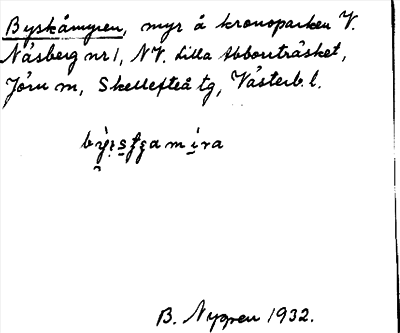 Byskåmyren, myr å kronoparken V.
Näsberg nr 1, NV. lilla Abborrträsket,
Jörn sn, Skellefteå tg, Västerb. l.
B. Nygren 1932.